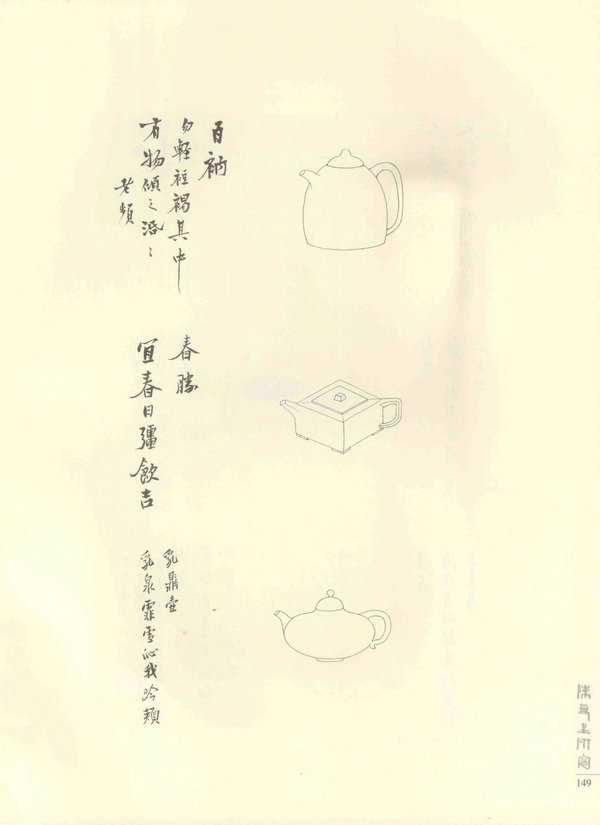 百衲
勿輕裋褐其中
有物傾之滔〻
老頻
春勝
宜春日彊飲吉
乳鼎壺
乳泉霏雪沁我吟頰
陳曼生研究
149